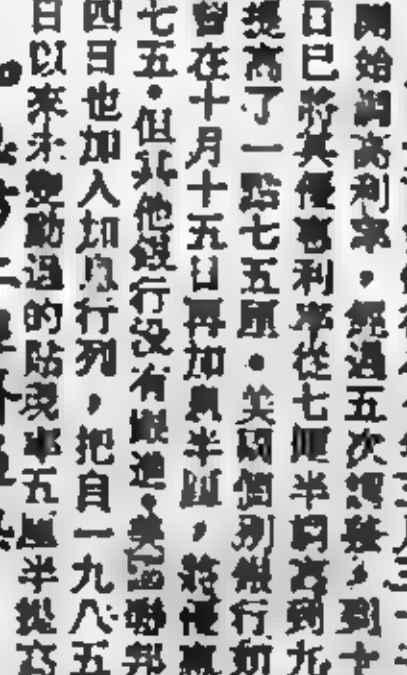 開始調高利率,經過五次調整,到十
日已將其優惠利率從七厘半調高到九
提高了一點七五厘。美國個別銀行如
曾在十月十五日再加息半厘,將優惠
七五。但其他銀行沒有跟進。美國聯邦
四日也加入加息行列,把自一九八五
日以來未變動過的貼現率五厘半提高